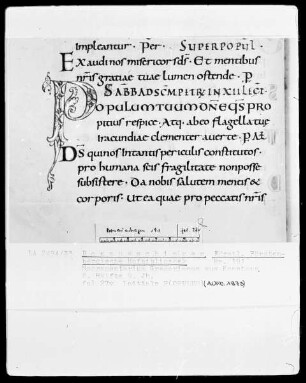 Impleantur · Per · SUPER POPUL ·
Exaudi nos misericors ds̄ · Et mentibus
nr̄is gratiae tuae lumen ostende · P
SABB AD SC̄M PETR̄ IN XII LECT̄
Populum tuum dn̄e qs̄ pro
pitius respice · Atq · ab eo flagella tuae
iracundiae clementer averte · P AL̄
Ds̄ qui nos In tantis periculis constitutos ·
pro humana scis fragilitate non posse
subsistere · Da nobis salutem mentis &
corporis · Ut ea quae pro peccatis nr̄is
Donaueschingen 191 fol. 27v
(AUFN. 1973)